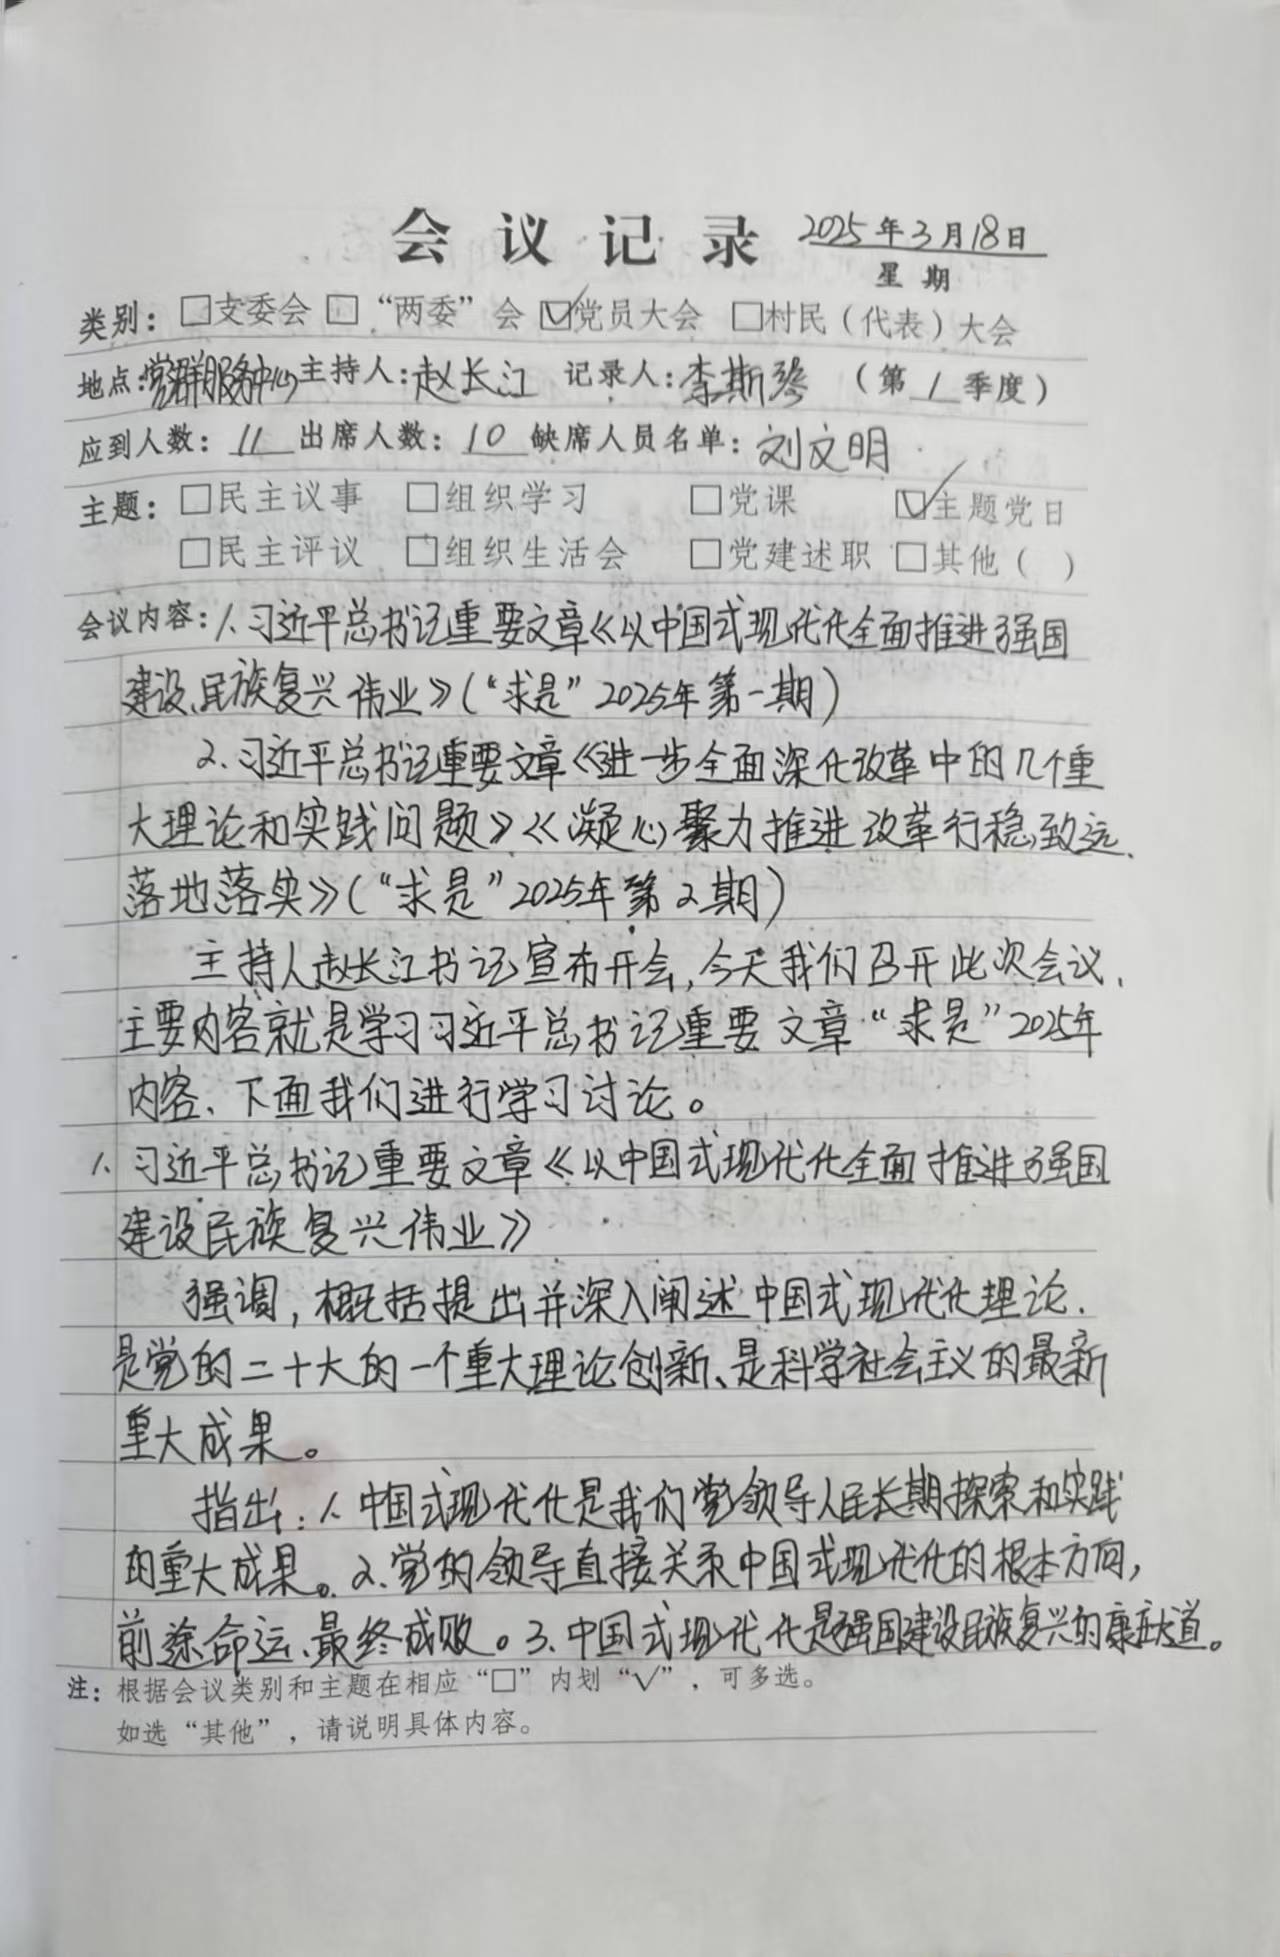 会议记录 2025年3月18日
星期
类别：□支委会 □“两委”会 ☑党员大会 □村民（代表）大会
地点：党群服务中心 主持人：赵长江 记录人：李斯琴 （第1季度）
应到人数：11 出席人数：10 缺席人员名单：刘文明
主题：□民主议事 □组织学习 □党课 ☑主题党日
□民主评议 □组织生活会 □党建述职 □其他（ ）
会议内容：1、习近平总书记重要文章《以中国式现代化全面推进强国
建设、民族复兴伟业》（“求是”2025年第一期）
2、习近平总书记重要文章《进一步全面深化改革中的几个重
大理论和实践问题》《凝心聚力推进改革行稳致远、
落地落实》（“求是”2025年第2期）
主持人赵长江书记宣布开会，今天我们召开此次会议、
主要内容就是学习习近平总书记重要文章“求是”2025年
内容、下面我们进行学习讨论。
1、习近平总书记重要文章《以中国式现代化全面推进强国
建设民族复兴伟业》
强调，概括提出并深入阐述中国式现代化理论、
是党的二十大的一个重大理论创新、是科学社会主义的最新
重大成果。
指出：1、中国式现代化是我们党领导人民长期探索和实践
的重大成果。2、党的领导直接关系中国式现代化的根本方向，
前途命运、最终成败。3、中国式现代化是强国建设民族复兴的康庄大道。
注：根据会议类别和主题在相应“□”内划“√”，可多选。
如选“其他”，请说明具体内容。